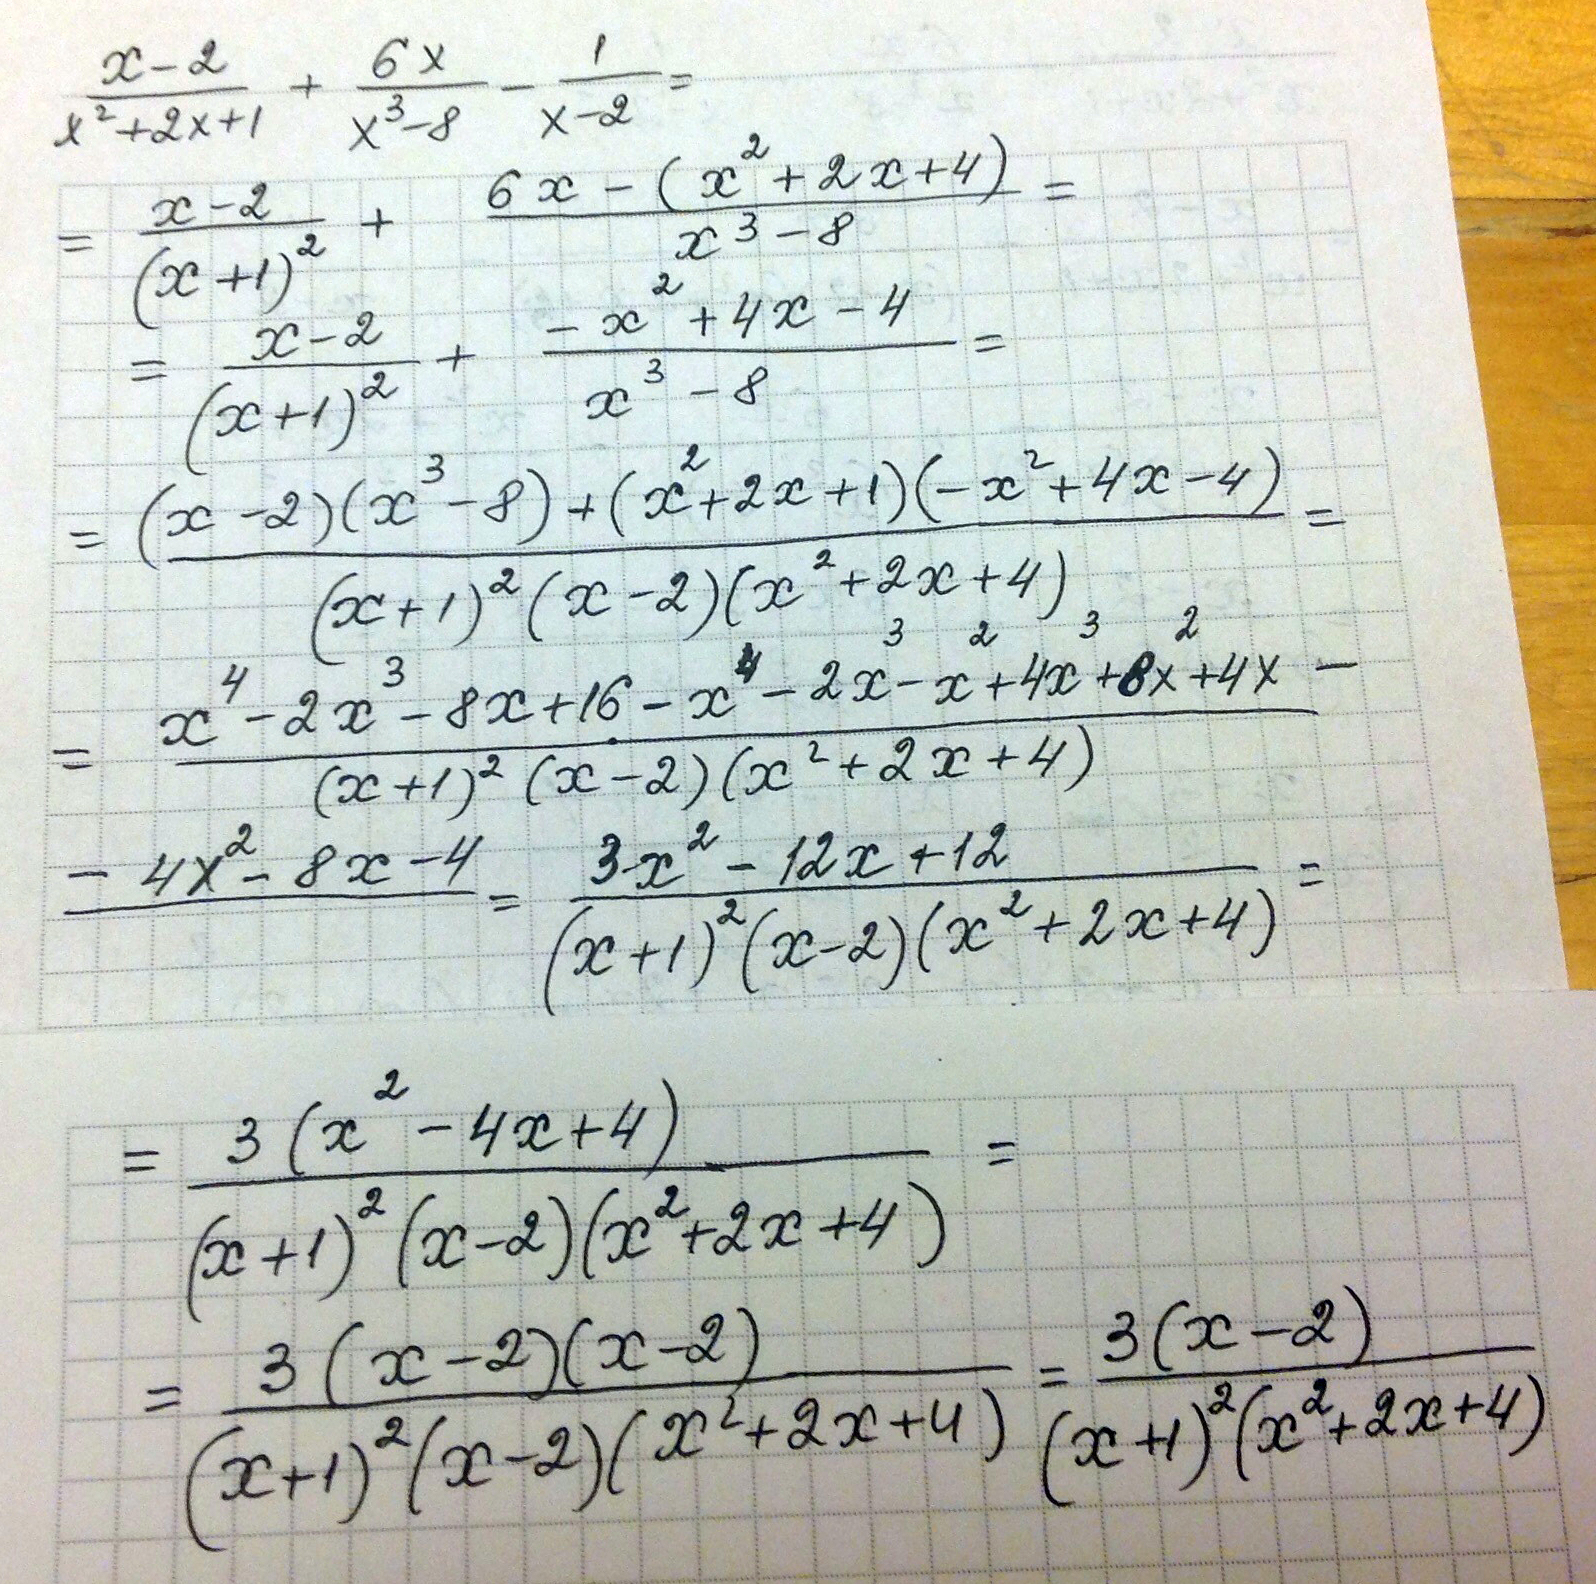 (x-2)/(x²+2x+1) + 6x/(x³-8) - 1/(x-2) =
= (x-2)/(x+1)² + (6x-(x²+2x+4))/(x³-8) =
= (x-2)/(x+1)² + (-x²+4x-4)/(x³-8) =
= ((x-2)(x³-8)+(x²+2x+1)(-x²+4x-4))/((x+1)²(x-2)(x²+2x+4)) =
= (x⁴-2x³-8x+16-x⁴-2x³-x²+4x³+8x²+4x-)/((x+1)²(x-2)(x²+2x+4))
-4x²-8x-4 = (3x²-12x+12)/((x+1)²(x-2)(x²+2x+4)) =
= 3(x²-4x+4)/((x+1)²(x-2)(x²+2x+4)) =
= 3(x-2)(x-2)/((x+1)²(x-2)(x²+2x+4)) = 3(x-2)/((x+1)²(x²+2x+4))